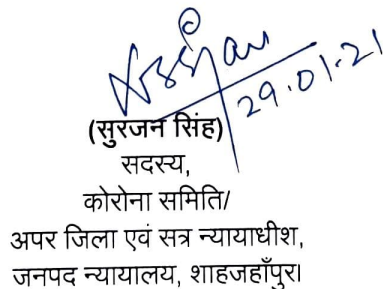 29.01.21
(सुरजन सिंह)
सदस्य,
कोरोना समिति/
अपर जिला एवं सत्र न्यायाधीश,
जनपद न्यायालय, शाहजहाँपुर।